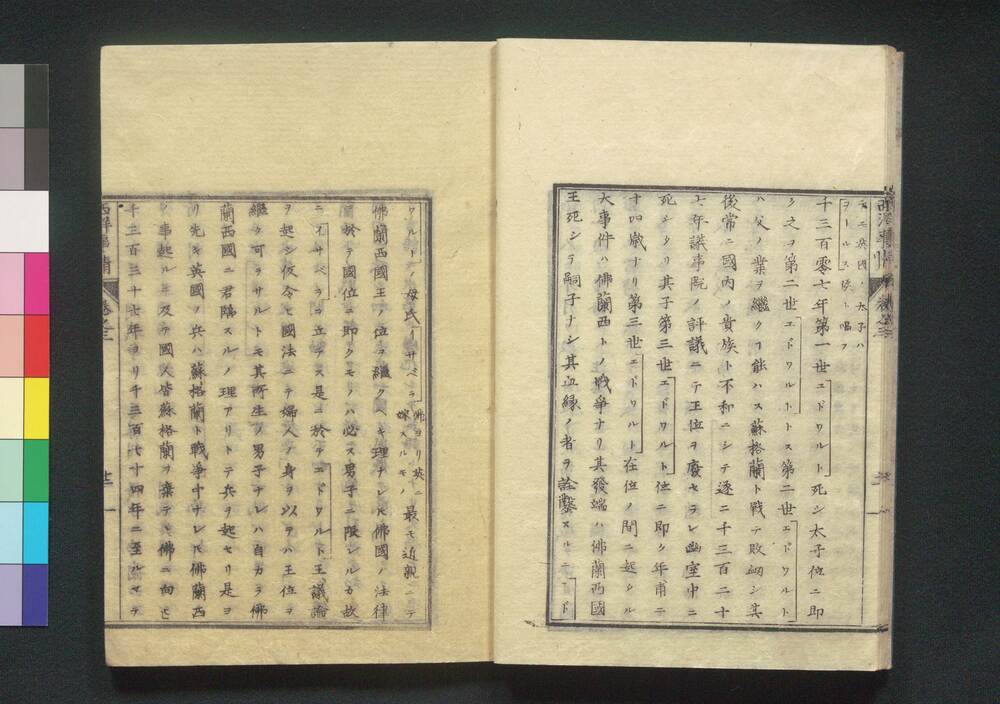 モ二英國ノ太子ハ
ヲールス侯ト唱フ
千三百零七年第一世エドワルト死シ太子位ニ即
ク之ヲ第二世エドワルトトス第二世エドワルト
ハ父ノ業ヲ繼クヿ能ハス蘇格蘭ト戰テ敗衂シ其
後常ニ國内ノ貴族ト不和ニシテ遂ニ千三百二十
七年議事院ノ評議ニテ王位ヲ廢セラレ幽室中ニ
死シタリ其子第三世エドワルト位ニ即ク年甫テ
十四歳ナリ第三世エドワルト在位ノ間ニ起タル
大事件ハ佛蘭西トノ戰爭ナリ其發端ハ佛蘭西國
王死シテ嗣子ナシ其血縁ノ者ヲ詮鑿スルニエド
ワルトノ母氏イサベラ佛ヨリ英ニ嫁スルモノ最モ近親ニテ
佛蘭西國王ノ位ヲ繼クヘキ理ナレ𪜈佛國ノ法律
ニ於テ國位ニ即クモノハ必ス男子ニ限シルカ故
ニイサベラヲ立テス是ニ於テエドワルト王議論
ヲ起シ仮令ヒ國法ニテ婦人ノ身ヲ以テハ王位ヲ
繼ク可ラサルトモ其所生ノ男子ナレハ自カラ佛
蘭西國ニ君臨スルノ理アリトテ兵ヲ起セリ是ヨ
リ先キ英國ノ兵ハ蘇格蘭ト戰爭中ナレ𪜈佛蘭西
ノ事起ルニ及テ國人皆蘇格蘭ヲ棄テヽ佛ニ向ヒ
千三百三十七年ヨリ千三百七十四年ニ至ルマテ
西洋事情
卷之三
廿一